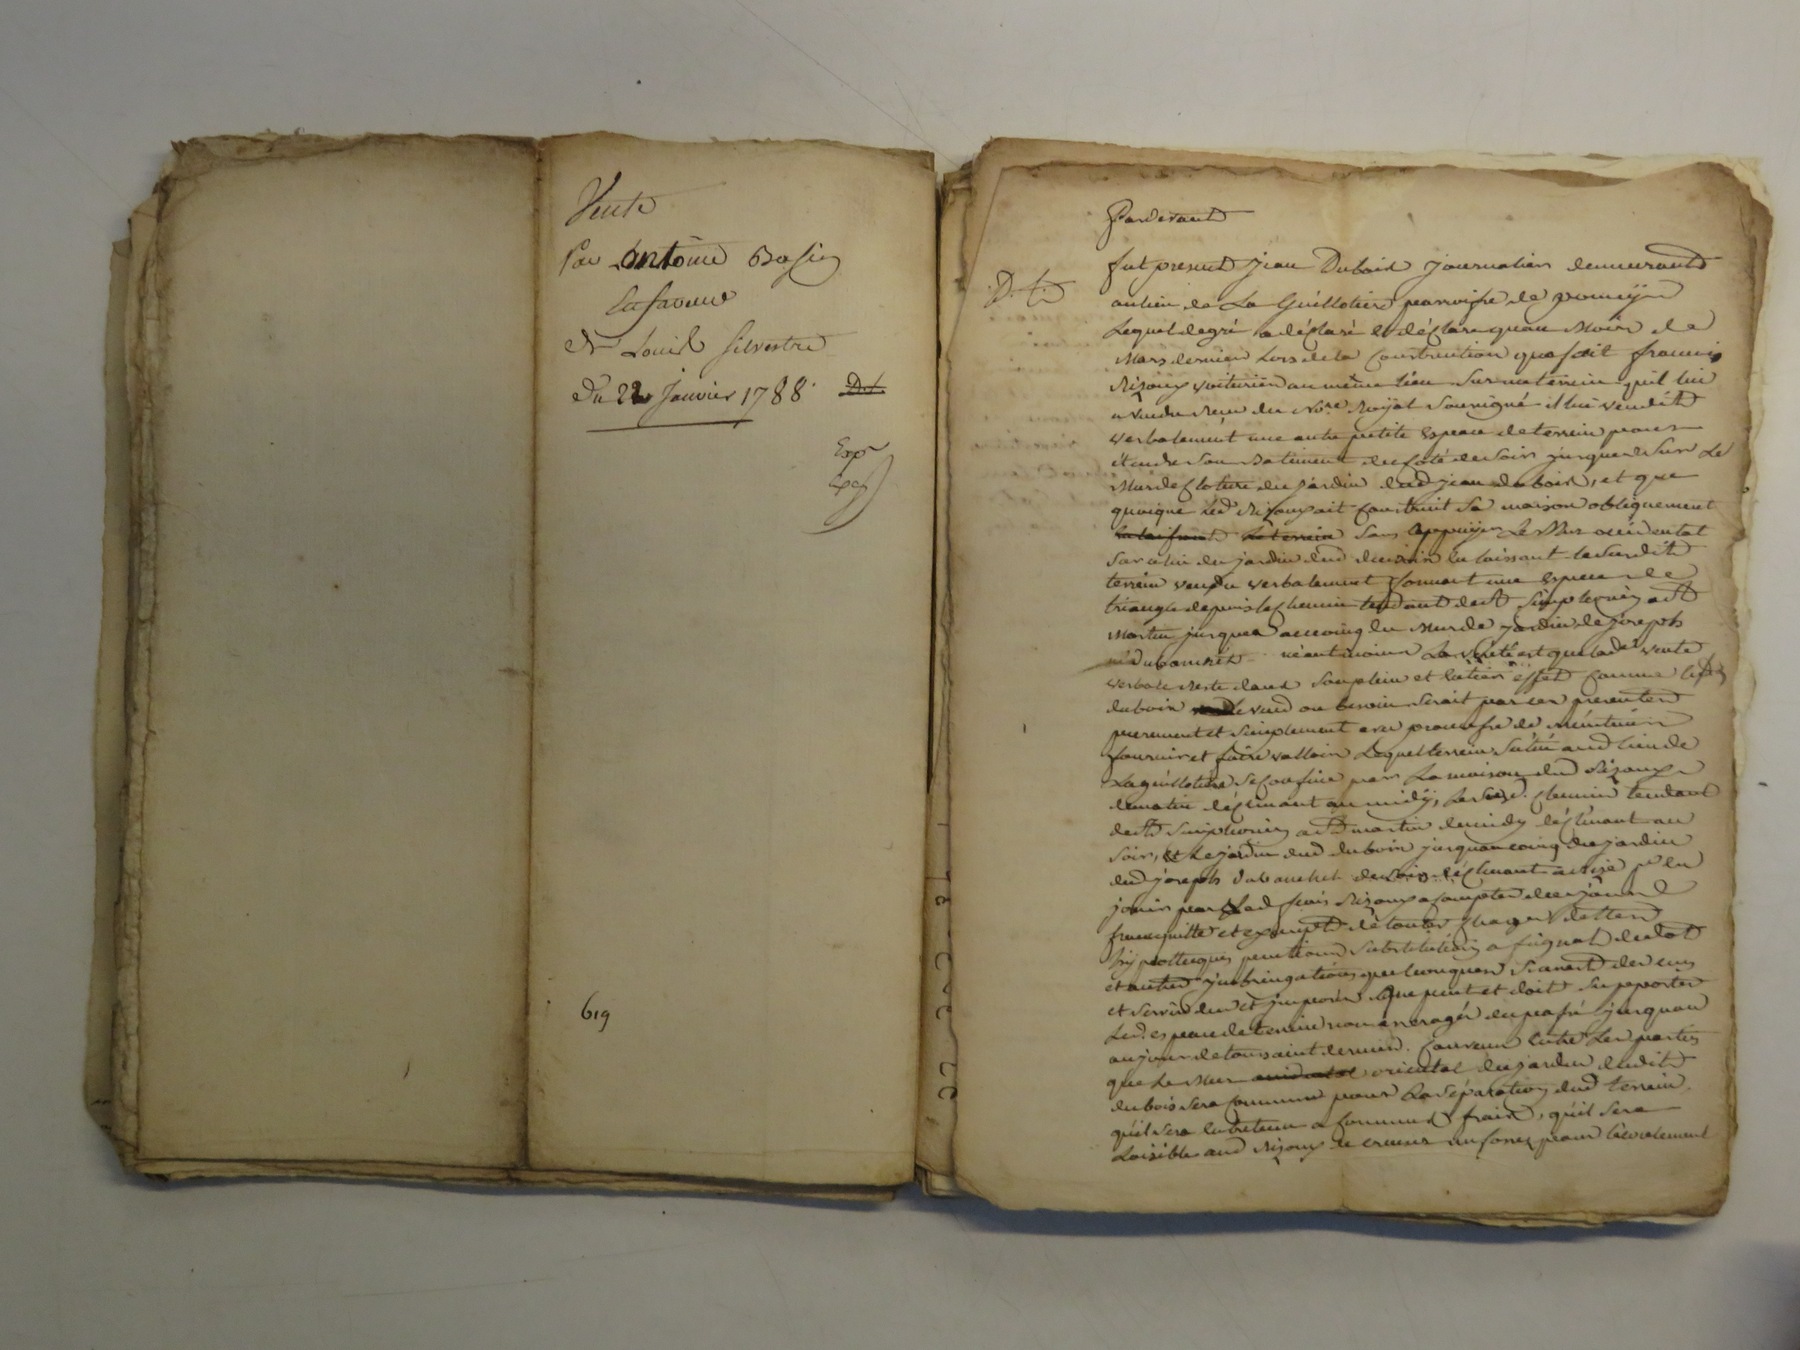 Vente
Par Antoine Basin
En faveur
de Louis Silvestre
Du 22 Janvier 1788.
Exp
619
Pardevant
fut present Jean Dubois Journalier demeurant
au lieu de La Guillotiere parroisse de pomeÿs
Lequel de gré a déclaré et déclare quau Mois de
Mars dernier Lors de la Construction qua fait francois
Rizoux voiturier au même Lieu Sur un terrein quil lui
a vendu Reçu du No.re Royal Soussigné il lui vendit
verbalement une autre petite Espace de terrein pour
étendre Son Batiment du Coté de Soir jusques Sur Le
Mur de Cloture du jardin dud jean dubois, et que
quoique Led Rizoux ait Construit Sa maison obliquement
Sans appuÿer Le Mur occidental
Sur celui du jardin dud dubois En laissant le Surdit
terrein vendu verbalement formant une Espece de
triangle depuis le Chemin tendant de St Simphorien a St
Martin jusques au coing du Mur de jardin de joseph
néantmoins La vérité est que lad vente
verbale Reste dans Son plein et Entier Effet Comme led
dubois Le vend au besoin Serait par ces presentes
purement et Simplement avec promesse de Maintenir
fournir et faire valloir Lequel terrein Situé aud Lieu de
La guillotiere Se Confine par La maison dud Rizoux
de matin déclinant au midÿ, Le Susd. Chemin tendant
de St Simphorien a St martin de midy déclinant au
Soir, et Le jardin dud dubois jusquau coing du jardin
dud joseph de Soir déclinant a Bize pr En
jouir par Led frcois Rizoux a Compter de ce jour
franc quitte et exempt de toutes Charges dettes
hÿpotteques pentions Substitution
et autres quelconques Sauf des cens
et Servis que peut et doit Supporter
Led. espace de terrein non arreragés du passé jusquau
au jour de toussaint dernier. Convenu Entre Les parties
que Le Mur oriental du jardin dudit
dubois Sera Commun pour La Séparation dud terrein
quil Sera Entretenu a Communs frais, quil Sera
Loisible aud Rizoux de creuser un fossez pour l'écoulement